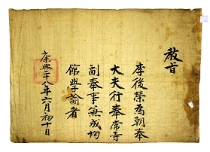 教旨
李後榮爲朝奉
大夫行奉常寺
副奉事兼成均
館學諭者
康熙二十八年六月初十日